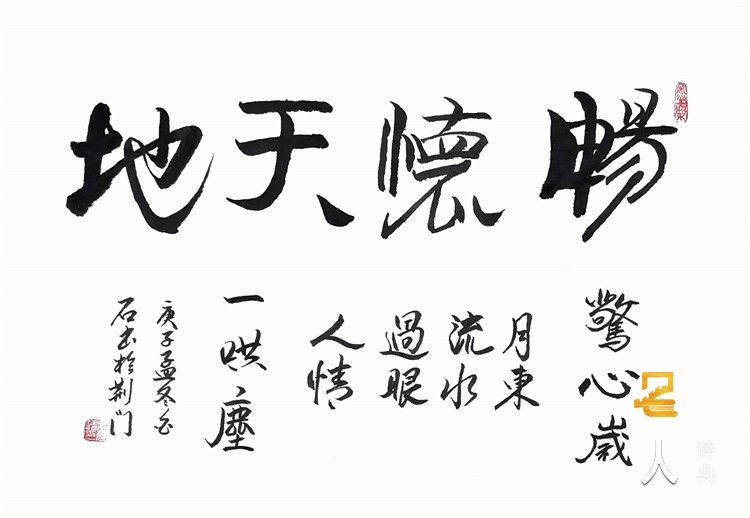 暢懷天地
驚心歲
月東
流水
過眼
人情
一哄塵
庚子孟冬白
石书於荆门
人
辞典